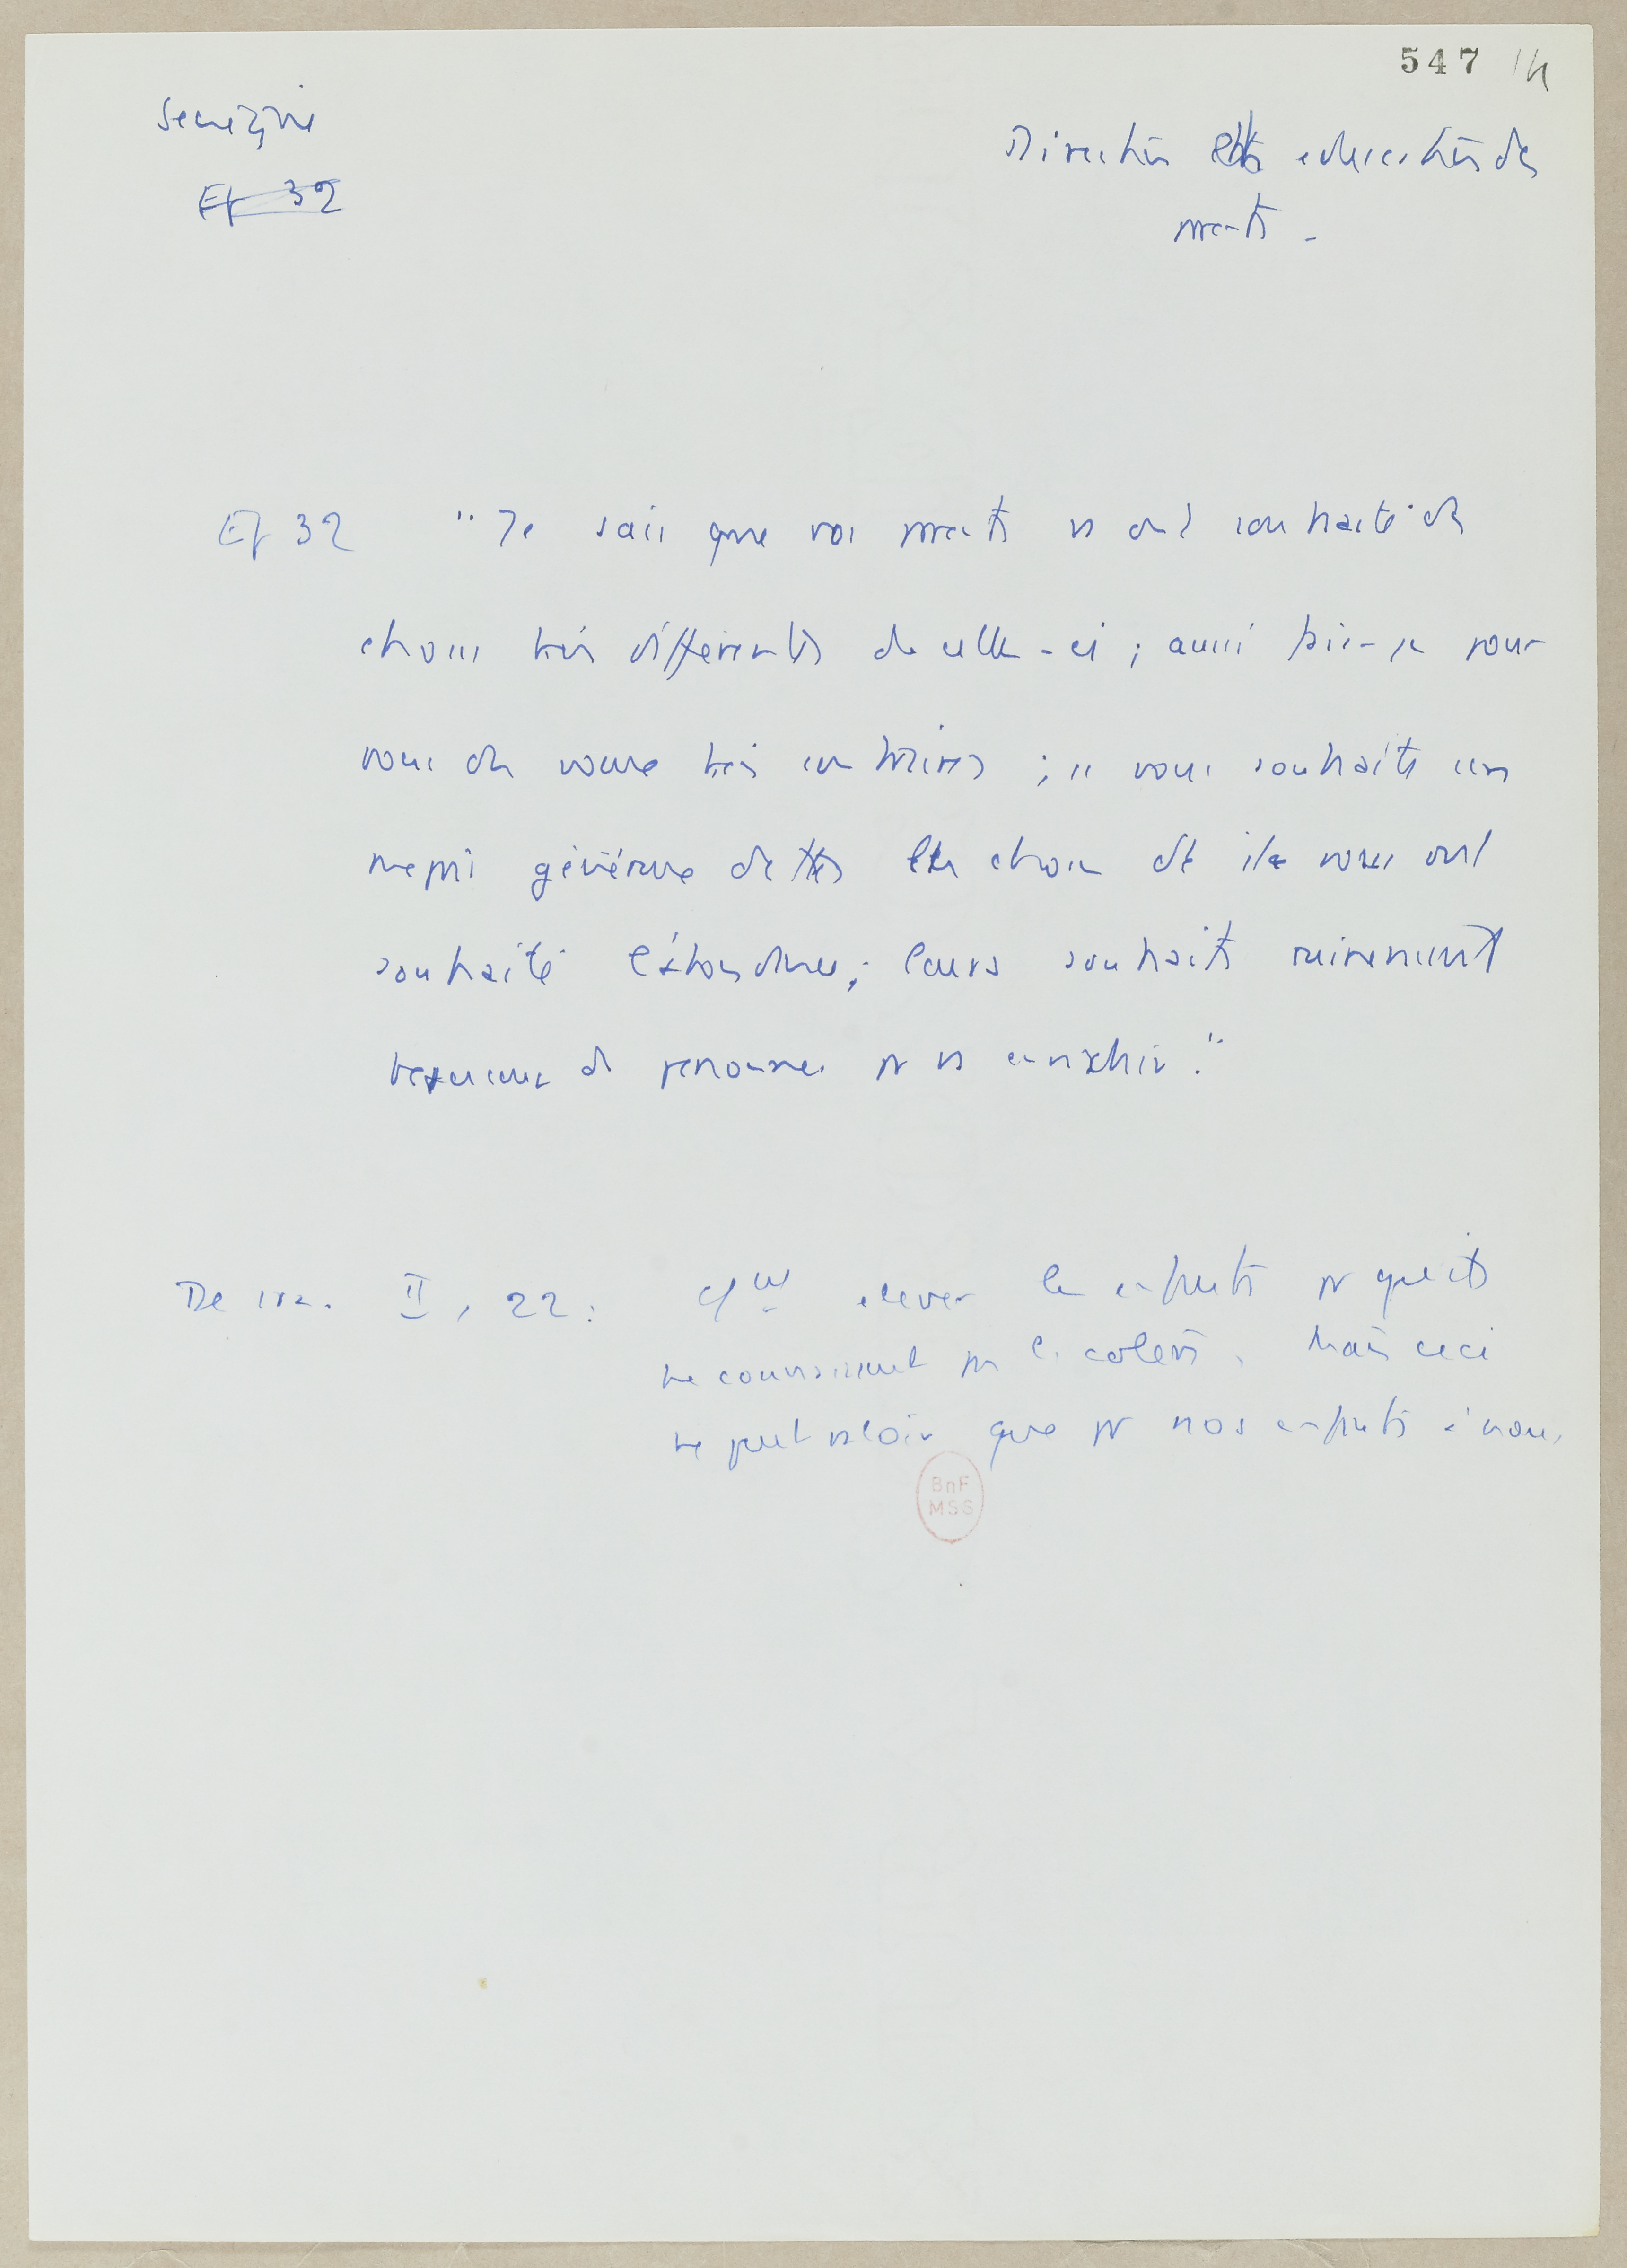 547
Sénèque
Ep 32
Direction et education des
parents.
Ep 32 "Je sais que vos parents vs ont souhaité des
choses très différentes de celles-ci ; aussi fais-je pour
vous des voeux très contraires ; je vous souhaite un
mépris généreux de ttes les choses dt ils vous ont
souhaité l'abondance ; leurs souhaits ruineraient
beaucoup de personnes pr vs enrichir."
De ira. II, 22 : élever les enfants pr qu'ils
ne connaissent pas la colère. Mais ceci
ne peut valoir que pr nos enfants à nous.
BnF
MSS